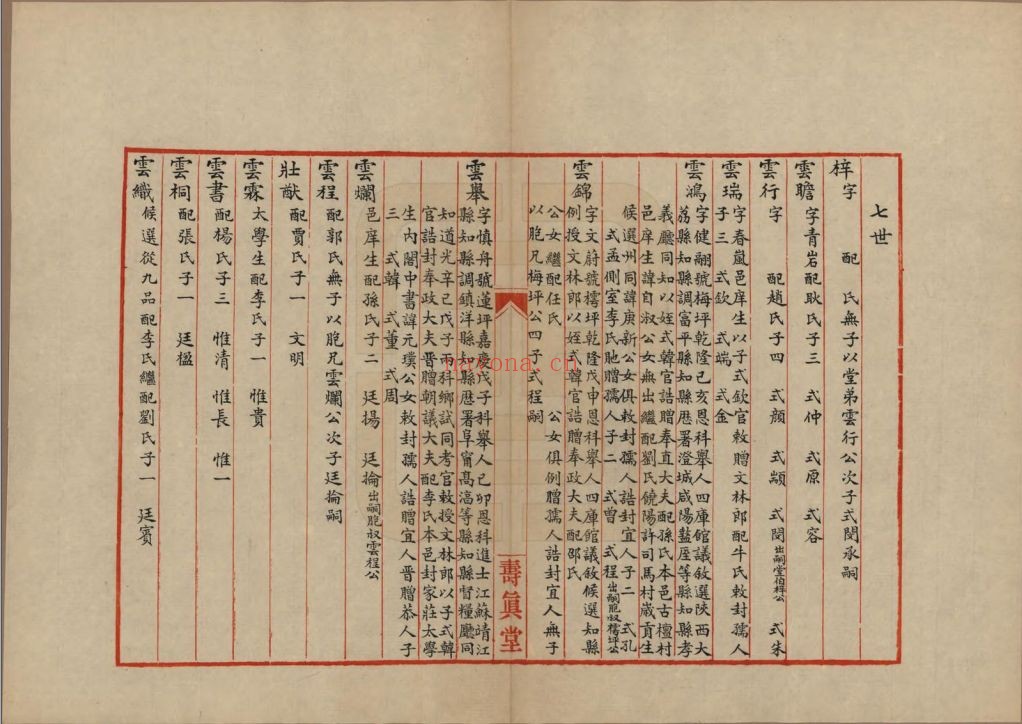 七世
梓 字 配 氏無子以堂弟雲行公次子式閔承嗣
雲瞻 字青岩配耿氏子三 式仲 式原 式容
雲行 字 配趙氏子四 式顏 式顓 式閔出嗣堂伯梓公 式朱
雲瑞 字春嵐邑庠生以子式欽官敕贈文林郎配牛氏敕封孺人
子三 式欽 式端 式金
雲鴻 字健翮號梅坪乾隆己亥恩科舉人四庫館議敘選陝西大
荔縣知縣調富平縣知縣歷署澄城咸陽盩厔等縣知縣孝
義廳同知以姪式韓官誥贈奉直大夫配孫氏本邑古檀村
邑庠生諱自淑公女無出繼配劉氏饒陽許司馬村歲貢生
候選州同諱庚新公女俱敕封孺人誥封宜人子二 式孔
式孟側室李氏貤贈孺人子二 式曾 式程出嗣胞叔檽坪公
雲錦 字文蔚號檽坪乾隆戊申恩科舉人四庫館議敘候選知縣
例授文林郎以姪式韓官誥贈奉政大夫配邵氏
公女繼配任氏 公女俱例贈孺人誥封宜人無子
以胞兄梅坪公四子式程嗣
雲舉 字慎舟號蓮坪嘉慶戊子科舉人己卯恩科進士江蘇靖江
縣知縣調鎮洋縣知縣歷署阜甯高淳等縣知縣督糧廳同
知道光辛巳戊子兩科鄉試同考官敕授文林郎以子式韓
官誥封奉政大夫晉贈朝議大夫配李氏本邑封家莊太學
生內閣中書諱元璞公女敕封孺人誥贈宜人晉贈恭人子
三 式韓 式董 式周
雲爛 邑庠生配孫氏子二 廷揚 廷掄出嗣胞叔雲程公
雲程 配郭氏無子以胞兄雲爛公次子廷掄嗣
壯猷 配賈氏子一 文明
雲霖 太學生配李氏子一 惟貴
雲書 配楊氏子三 惟清 惟長 惟一
雲桐 配張氏子一 廷楹
雲織 候選從九品配李氏繼配劉氏子一 廷賓
壽眞堂